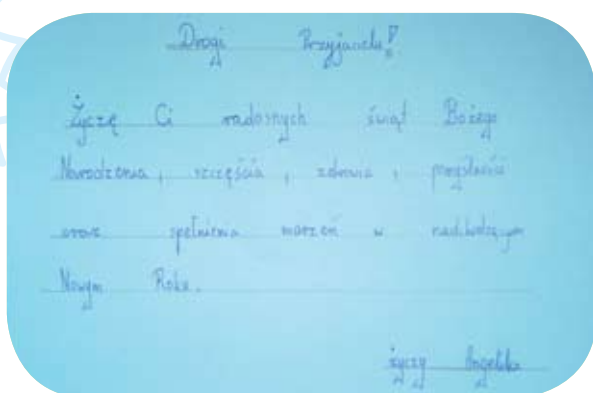 Drogi Przyjacielu!
Życzę Ci radosnych świąt Bożego
Narodzenia, szczęścia, zdrowia, pomyślności
oraz spełnienia marzeń w nadchodzącym
Nowym Roku.
życzy Angelika